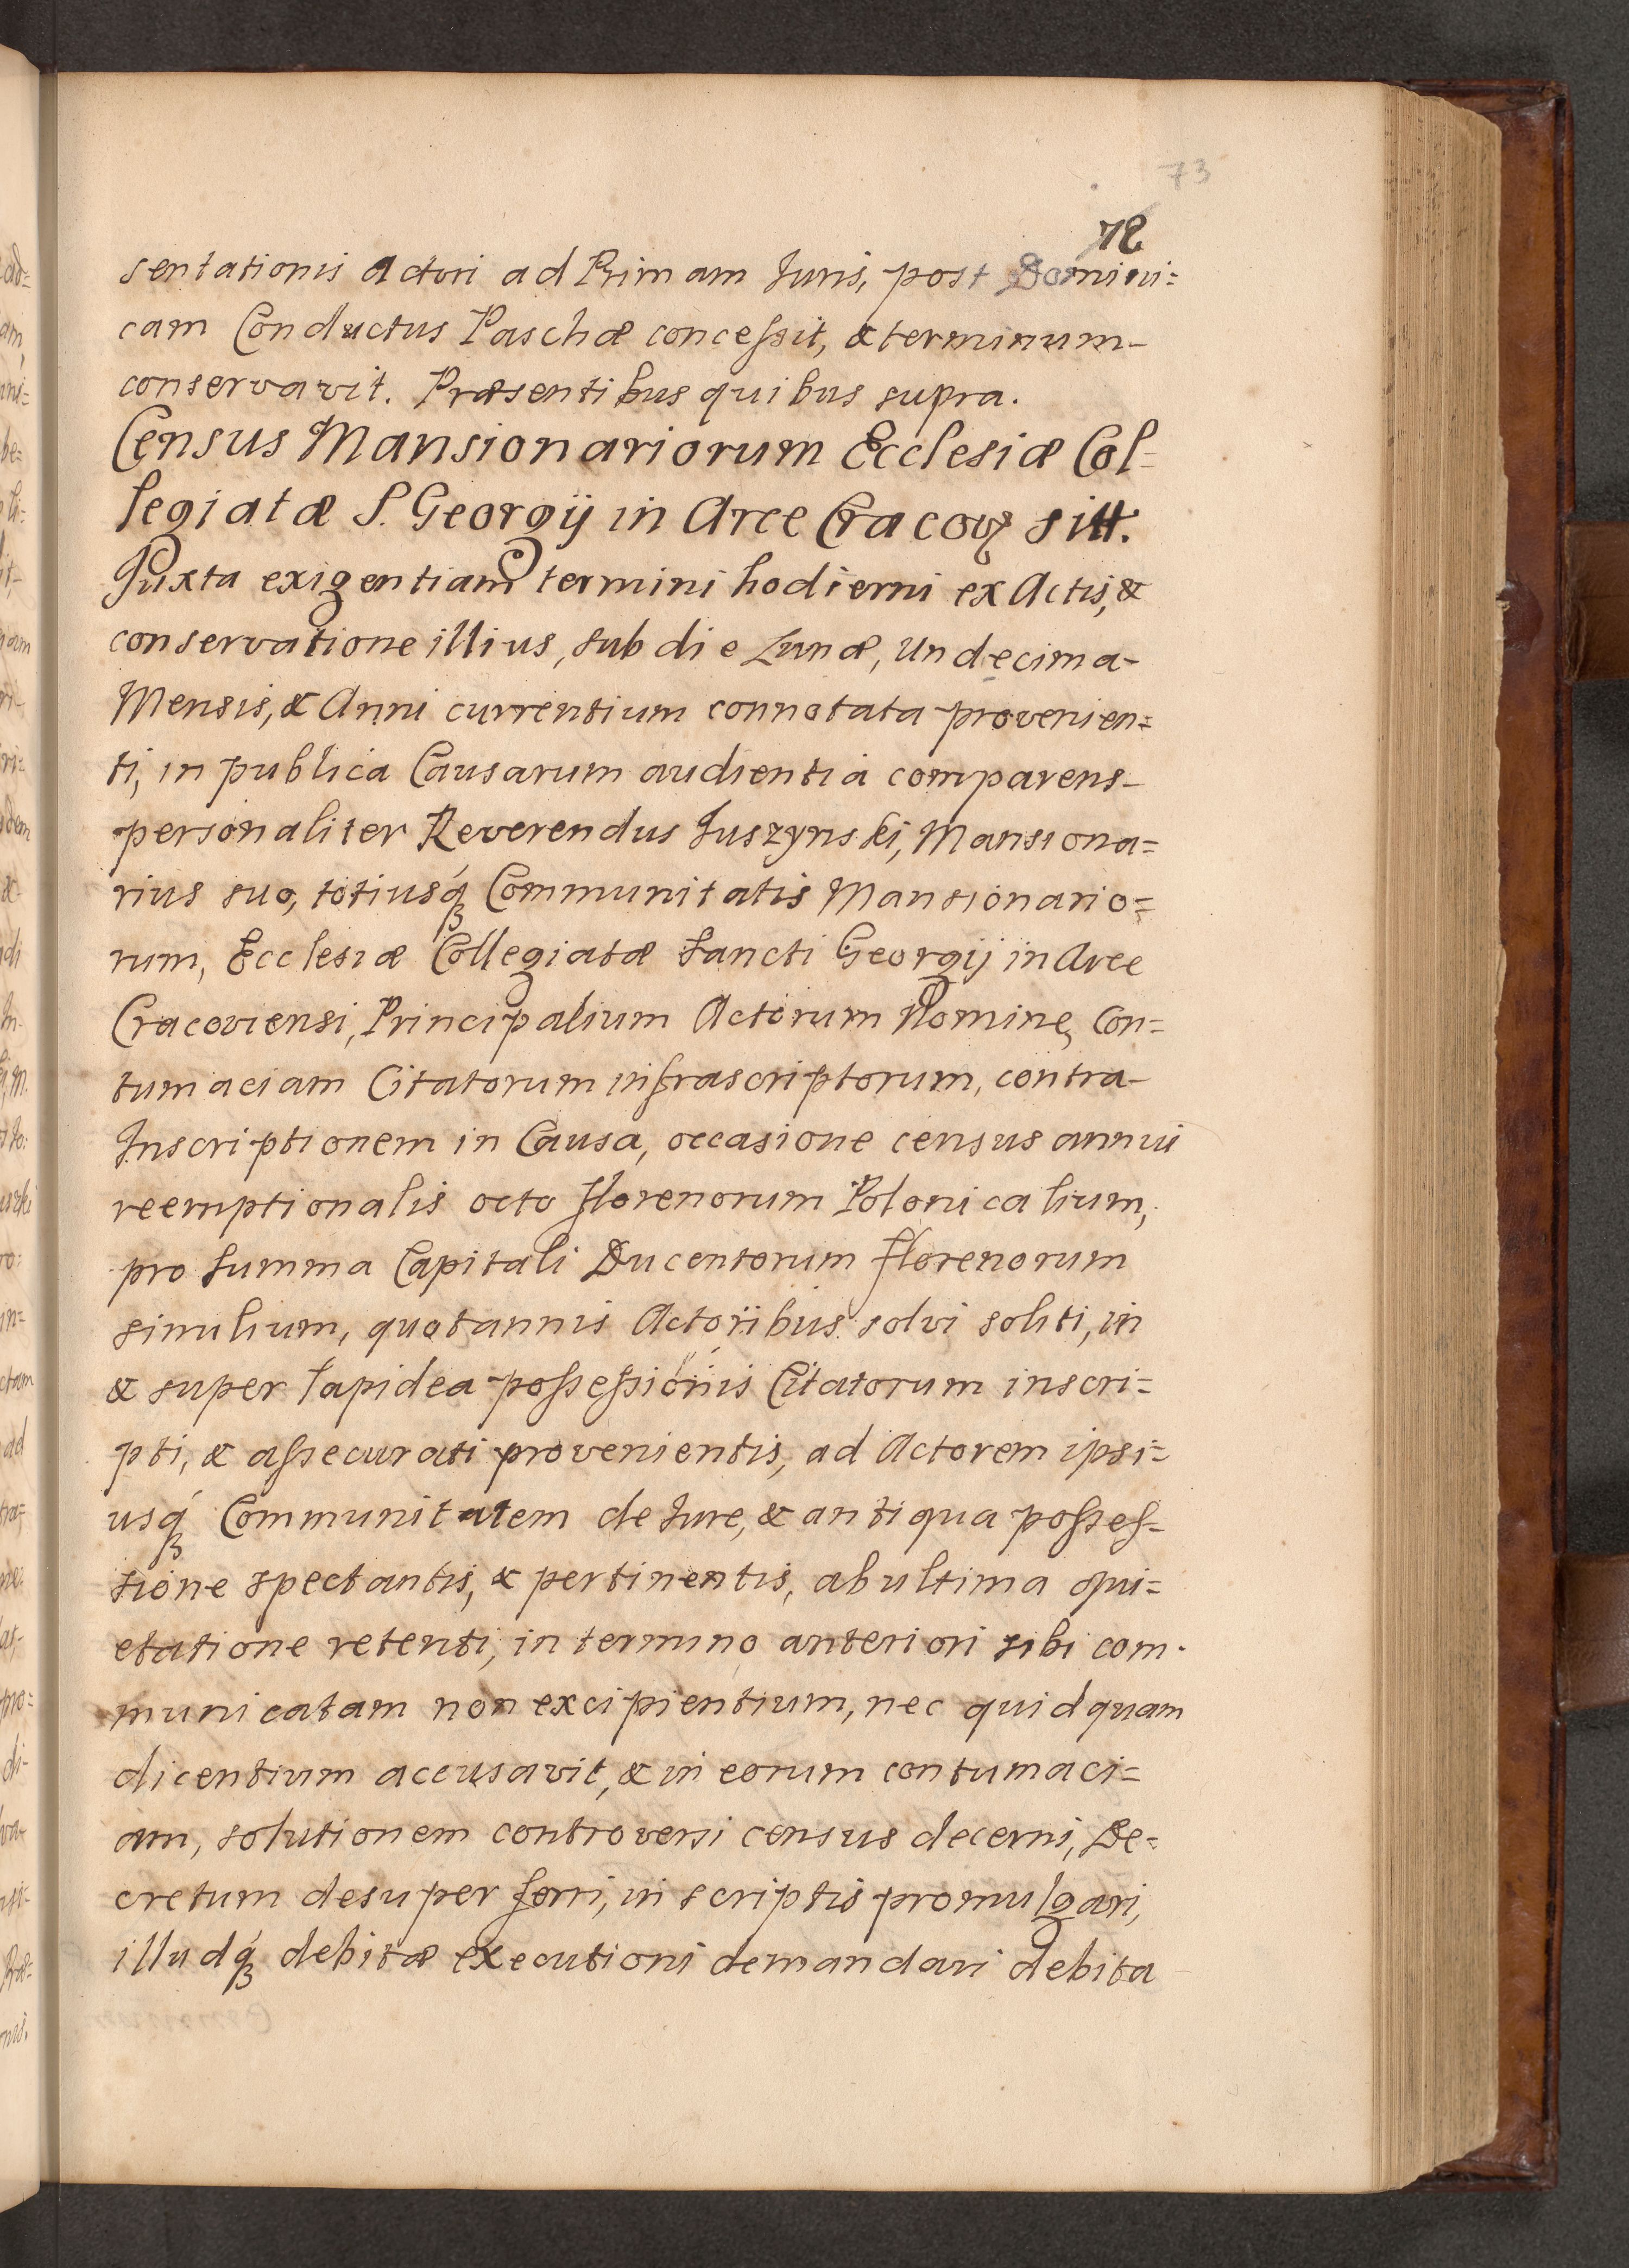 73
72
sentationis Actori ad Primam Juris, post Domini=
cam Conductus Paschæ concessit, & terminum-
conservavit. Præsentibus quibus supra.
Census Mansionariorum Ecclesiæ Col=
legiatæ S. Georgij in Arce Cracov sitt.
Juxta exigentiam termini hodierni ex Actis, &
conservatione illius, sub die Lunæ, Undecima-
Mensis, & Anni currentium connotata provenien=
ti, in publica Causarum audientia comparens-
personaliter Reverendus Juszynski, Mansiona=
rius suo, totiusq́ꝫ Communitatis Mansionario=
rum, Ecclesiæ Collegiatæ Sancti Georgij in Arce
Cracoviensi, Principalium Actorum Nomine, Con=
tumaciam Citatorum infrascriptorum, contra-
Inscriptionem in Causa, occasione census annui
reemptionalis octo florenorum Polonicalium,
pro Summa Capitali Ducentorum florenorum
similium, quotannis Actoribus solvi soliti, in
& super lapidea possessionis Citatorum inscri=
pti, & assecurati provenientis, ad Actorem ipsi=
usq́ꝫ Communitatem de Jure, & antiqua posses-
sione spectantis, & pertinentis, ab ultima qui=
etatione retenti, in termino anteriori sibi com-
municatam non excipientium, nec quidquam
dicentium accusavit, & in eorum contumaci=
am, solutionem controversi census decerni, De=
cretum desuper ferri, in scriptis promulgari,
illudq́ꝫ debitæ executioni demandari debita